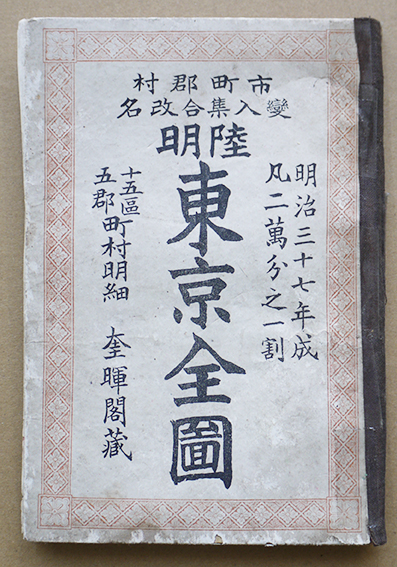 市町郡村
變入集合改名
陸明
明治三十七年成
凡二萬分之一割
東京全圖
十五區
五郡
町村明細 奎暉閣藏